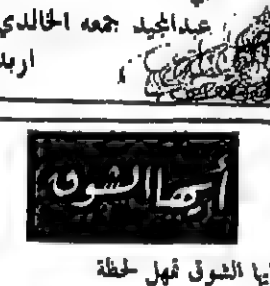 عبدالمجيد جمعه الخالدي
اربد
أيها الشوق
أيا الشوق تمهل لحظة